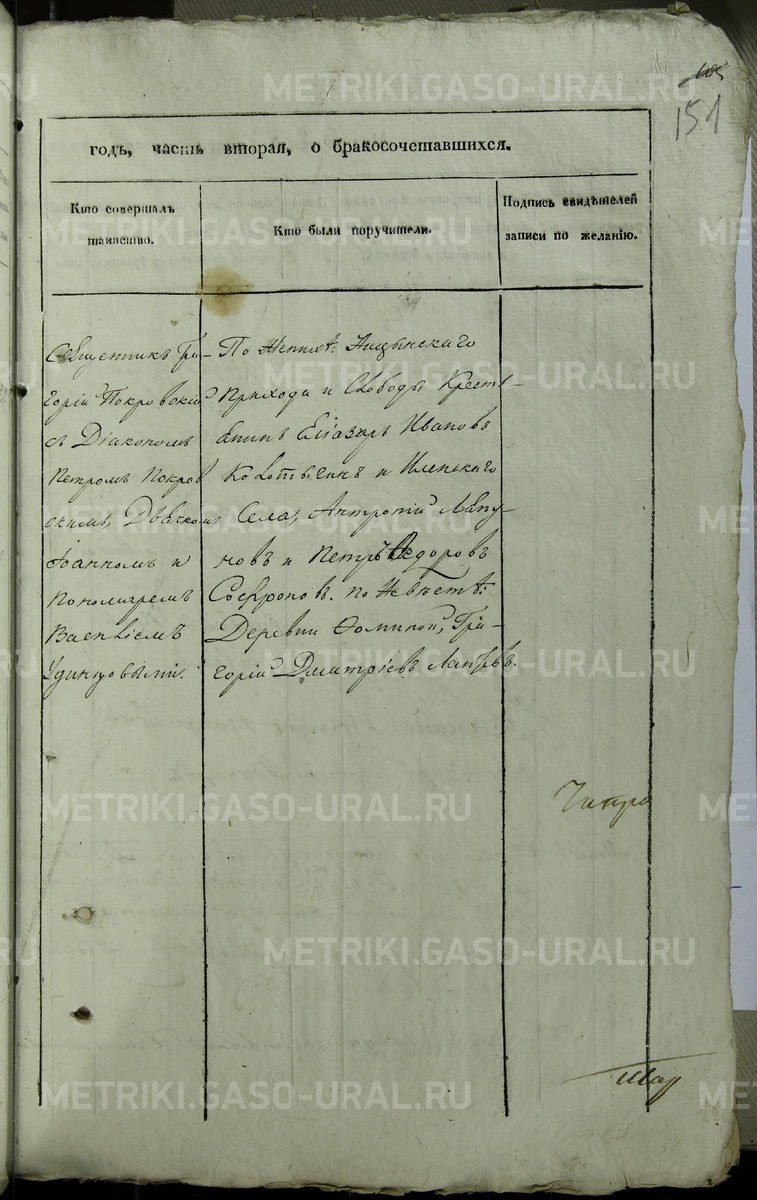 151
годъ, часть вторая, о бракосочетавшихся.
Кто совершалъ
таинство.
Кто были поручители.
Подпись свидѣтелей
записи по желанію.
Священникъ Гри-
горій Покровскій
съ Діакономъ
Петромъ Покров
скимъ, Дьячкомъ
Іоанномъ и
Пономаремъ
Василіемъ
Удинцовыми.
По Женихѣ: Ницынскаго
прихода и Слободы Крестья-
янинъ Еліазаръ Ивановъ
и Иленскаго
Села, Антропій Лапу-
новъ и Петръ Ѳедоровъ
Софроновъ. по Невѣстѣ:
Деревни Ѳоминой, Гри-
горій Дмитріевъ Лаптевъ.
METRIKI.GASO-URAL.RU